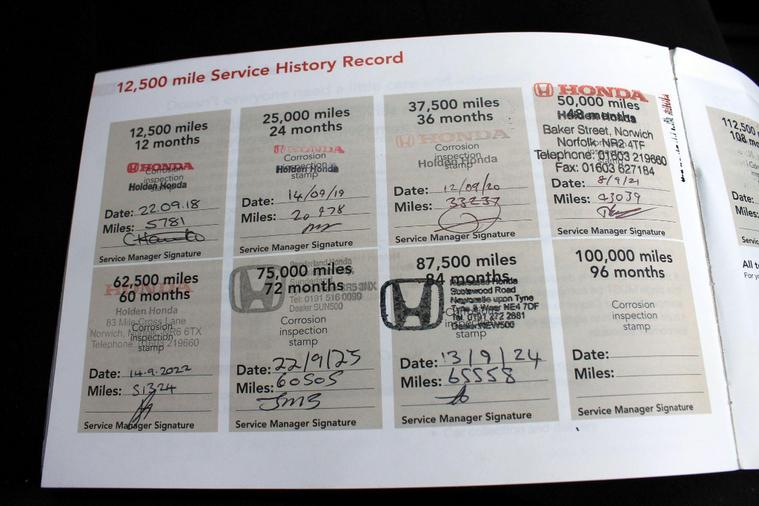 12,500 mile Service History Record
12,500 miles
12 months
HONDA
Corrosion
inspection
stamp
Holden Honda
Date: 22.09.18
Miles: 5781
Service Manager Signature
25,000 miles
24 months
HONDA
Corrosion
inspection
stamp
Holden Honda
Date: 14/09/19
Miles: 20 978
Service Manager Signature
37,500 miles
36 months
HONDA
Corrosion
inspection
stamp
Holden Honda
Date: 12/09/20
Miles: 33237
Service Manager Signature
HONDA
50,000 miles
48 months
Holden Honda
Baker Street, Norwich
Norfolk NR2 4TF
Telephone: 01603 219660
Fax: 01603 627184
Date: 8/9/21
Miles: 43039
Service Manager Signature
62,500 miles
60 months
HONDA
Holden Honda
Corrosion
inspection
stamp
Telephone 01603 219660
Date: 14.9.2022
Miles: 51324
Service Manager Signature
75,000 miles
72 months
Sunderland Honda
Tel: 0191 516 0099
Dealer SUN500
Corrosion
inspection
stamp
Date: 22/9/23
Miles: 60505
Service Manager Signature
87,500 miles
84 months
Newcastle upon Tyne
NE4 7DF
Tel. 0191 272 2881
Dealer NEW500
Corrosion
inspection
stamp
Date: 13/9/24
Miles: 65558
Service Manager Signature
100,000 miles
96 months
Corrosion
inspection
stamp
Date:
Miles:
Service Manager Signature
112,500
108
Date:
Miles:
Service
All
For